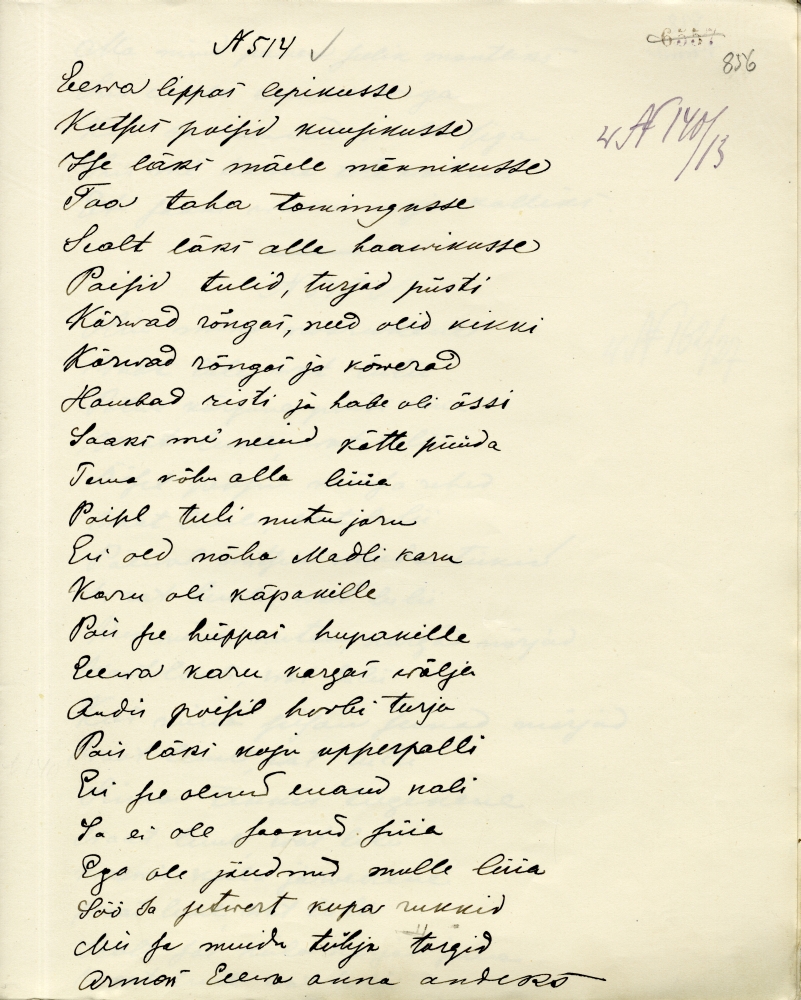 N 514
6557
856
N 140/13
Eewa lippas lepikusse
Kutsus poisid kuusikusse
Ise läks mäele männikusse
Taa taha toomingusse
Sealt läks alla haawikusse
Poisid tulid, turjad püsti
Kõrwad rõngas, need olid kikki
Kõrwad rõngas ja kõwerad
Hambad risti ja habe oli õssi
Saaks me neiud kätte püüda
Tema kõhu alla lüüa
Poisil tuli nutu joru
Ei old näha Madli karu
Karu oli käpakille
Pois se hüppas hupakille
Eewa karu kargas wälja
Andis poisil hoobi turja
Pois läks koju upperpalli
Ei se olnud enam nali
Sa ei ole saanud süia
Ega ole jäudnud mulle lüia
Söö sa setwert kupa rukkid
Mis sa muidu tühja torgid
Armas Eewa anna andeks